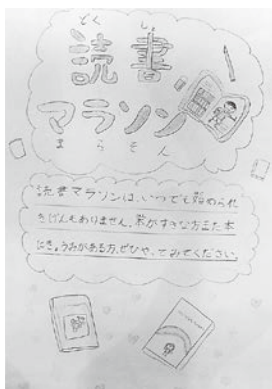 どくしょ
読書
マラソン
まらそん
読書マラソンは、いつでも始められ
きげんもありません。本がすきな方また本
にきょうみがある方、ぜひやってみてください。